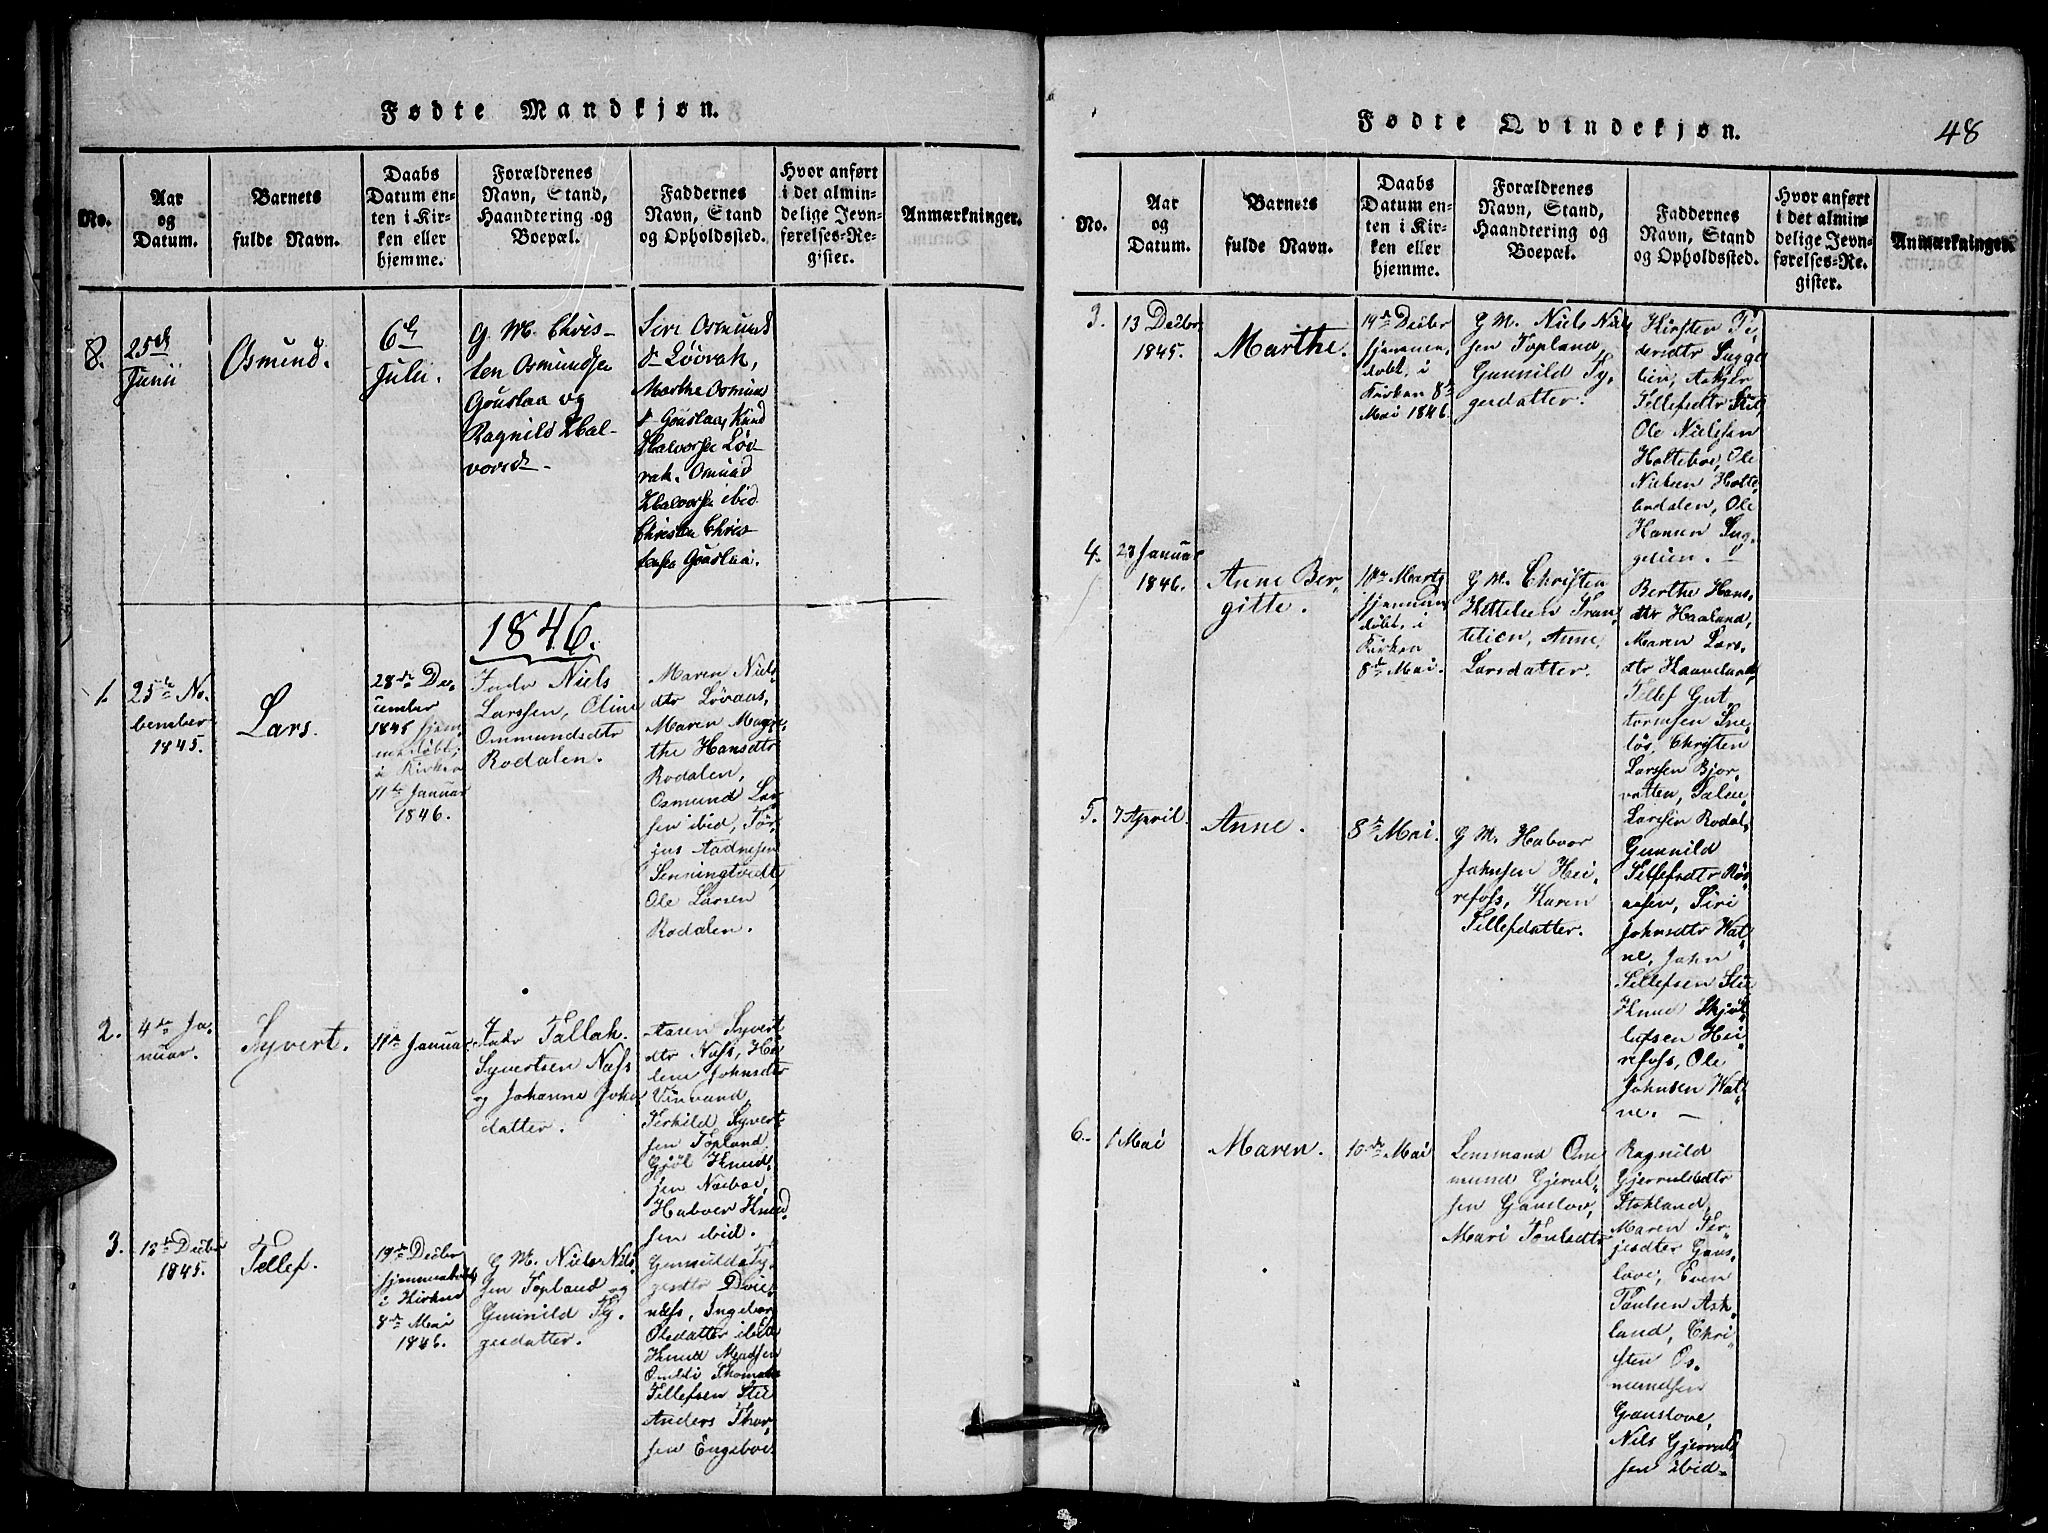 Fødte Mandkjøn.
No.
Aar
og
Datum.
Barnets
fulde Navn.
Daabs
Datum en-
ten i Kir-
ken eller
hjemme.
Forældrenes
Navn, Stand,
Haandtering og
Boepæl.
Faddernes
Navn, Stand
og Opholdssted.
Hvor anført
i det almin-
delige Jevn-
førelses-Re-
gister.
Anmærkninger.
8.
25de
Junii
Osmund.
6te
Julii.
G. M. Chris-
ten Osmundsen
Gouslaa og
Ragnild Hal-
vorsd.
Siri Osmunds
d. Løvrak,
Marthe Osmund
d. Gouslaa, Knud
Halvorsen Løv
rak. Osmund
Halvorsen ibid
Christen Chris
tensen Gouslaa.
1846.
1.
25de No-
vember
1845.
Lars.
28de De-
cember
1845 hjem-
medøbt,
i Kirken
11te Januar
1846.
Inds Niels
Larssen, Oline
Ommundsdtr
Rodalen.
Maren Niels
dtr Løvaas,
Maren Magre
the Hansdtr
Rodalen,
Osmund Lar-
sen ibid, Tør-
jus Aadnesen
Senningtvedt,
Ole Larsen
Rodalen.
2.
4de Ja-
nuar.
Syvert.
11te Januar
Inds Tallak
Syvertsen Næss
og Johanne John
datter.
Aasen Syvert
dtr Næss, He
lene Johnsdtr
Vinvand,
Terkild Syvert
sen Topland
Gjøl Knud-
sen Næeboe,
Halvor Knud
sen ibid.
3.
13de Decbr
1845.
Tellef.
19de Decbr
hjemmedøbt
i Kirken
8de Mai
1846.
G. M. Niels Niel-
sen Topland og
Gunnild Ty-
gesdatter.
Gunnild Ty-
gesdtr Dvie-
næss, Ingebor
Olsdatter ibid
Knud Madsen
Omldi Thomas
Tellefsen Stie
Anders Thor-
sen Engeboe
Fødte Qvindekjøn.
48
No.
Aar
og
Datum.
Barnets
fulde Navn.
Daabs
Datum en-
ten i Kir-
ken eller
hjemme.
Forældrenes
Navn, Stand,
Haandtering og
Boepæl.
Faddernes
Navn, Stand
og Opholdssted.
Hvor anført
i det almin-
delige Jevn-
førelses-Re-
gister.
Anmærkninger.
3.
13 Decbr
1845.
Marthe.
19de Decbr
hjemme
døbt, i
Kirken 8de
Mai 1846.
G. M. Niels Niel
sen Topland,
Gunnild Ty-
gesdatter.
Kirsten Pe-
dersdtr Sugge
lien, Aaskjer
Tellefsdtr Stie,
Ole Nielsen
Holteboe, Ole
Nielsen Holte
bodalen, Ole
Hansen Sug-
gelien.
4.
23 Januar
1846.
Anne Ber-
gitte.
18de Marts
hjemme
døbt, i
Kirken
8de Mai.
G. M. Christen
Kittelsen Tran-
telien, Anne
Larsdatter.
Berthe Hans-
dtr Haaland,
Maren Lars-
dtr Haaneland,
Tellef Gut-
tormsen Sne-
løs, Christen
Larssen Bjor-
vatten, Salve
Larssen Rodal,
5.
7 April.
Anne.
8de Mai.
G. M. Halvor
Johnsen Hei-
refoss, Karen
Tellefdatter.
Gunnild
Tellefsdtr Røs-
aasen, Siri
Johnsdtr Wat-
ne, John
Tellefsen Stie
Knud Skjøl-
lefsen Hei-
refoss, Ole
Johnsen Wat-
ne.
6.
1 Mai
Maren.
10de Mai
Lensmand Om
mund Gjerul-
sen Gauslov,
Mari Poulsdtr
Ragnild
Gjerulsdtr
Stokland,
Maren Tør-
jesdtter Gaus-
love, Even
Poulsen Ask-
land, Chri-
sten Os-
mundsen
Gauslove,
Nils Gjeruld
sen ibid.